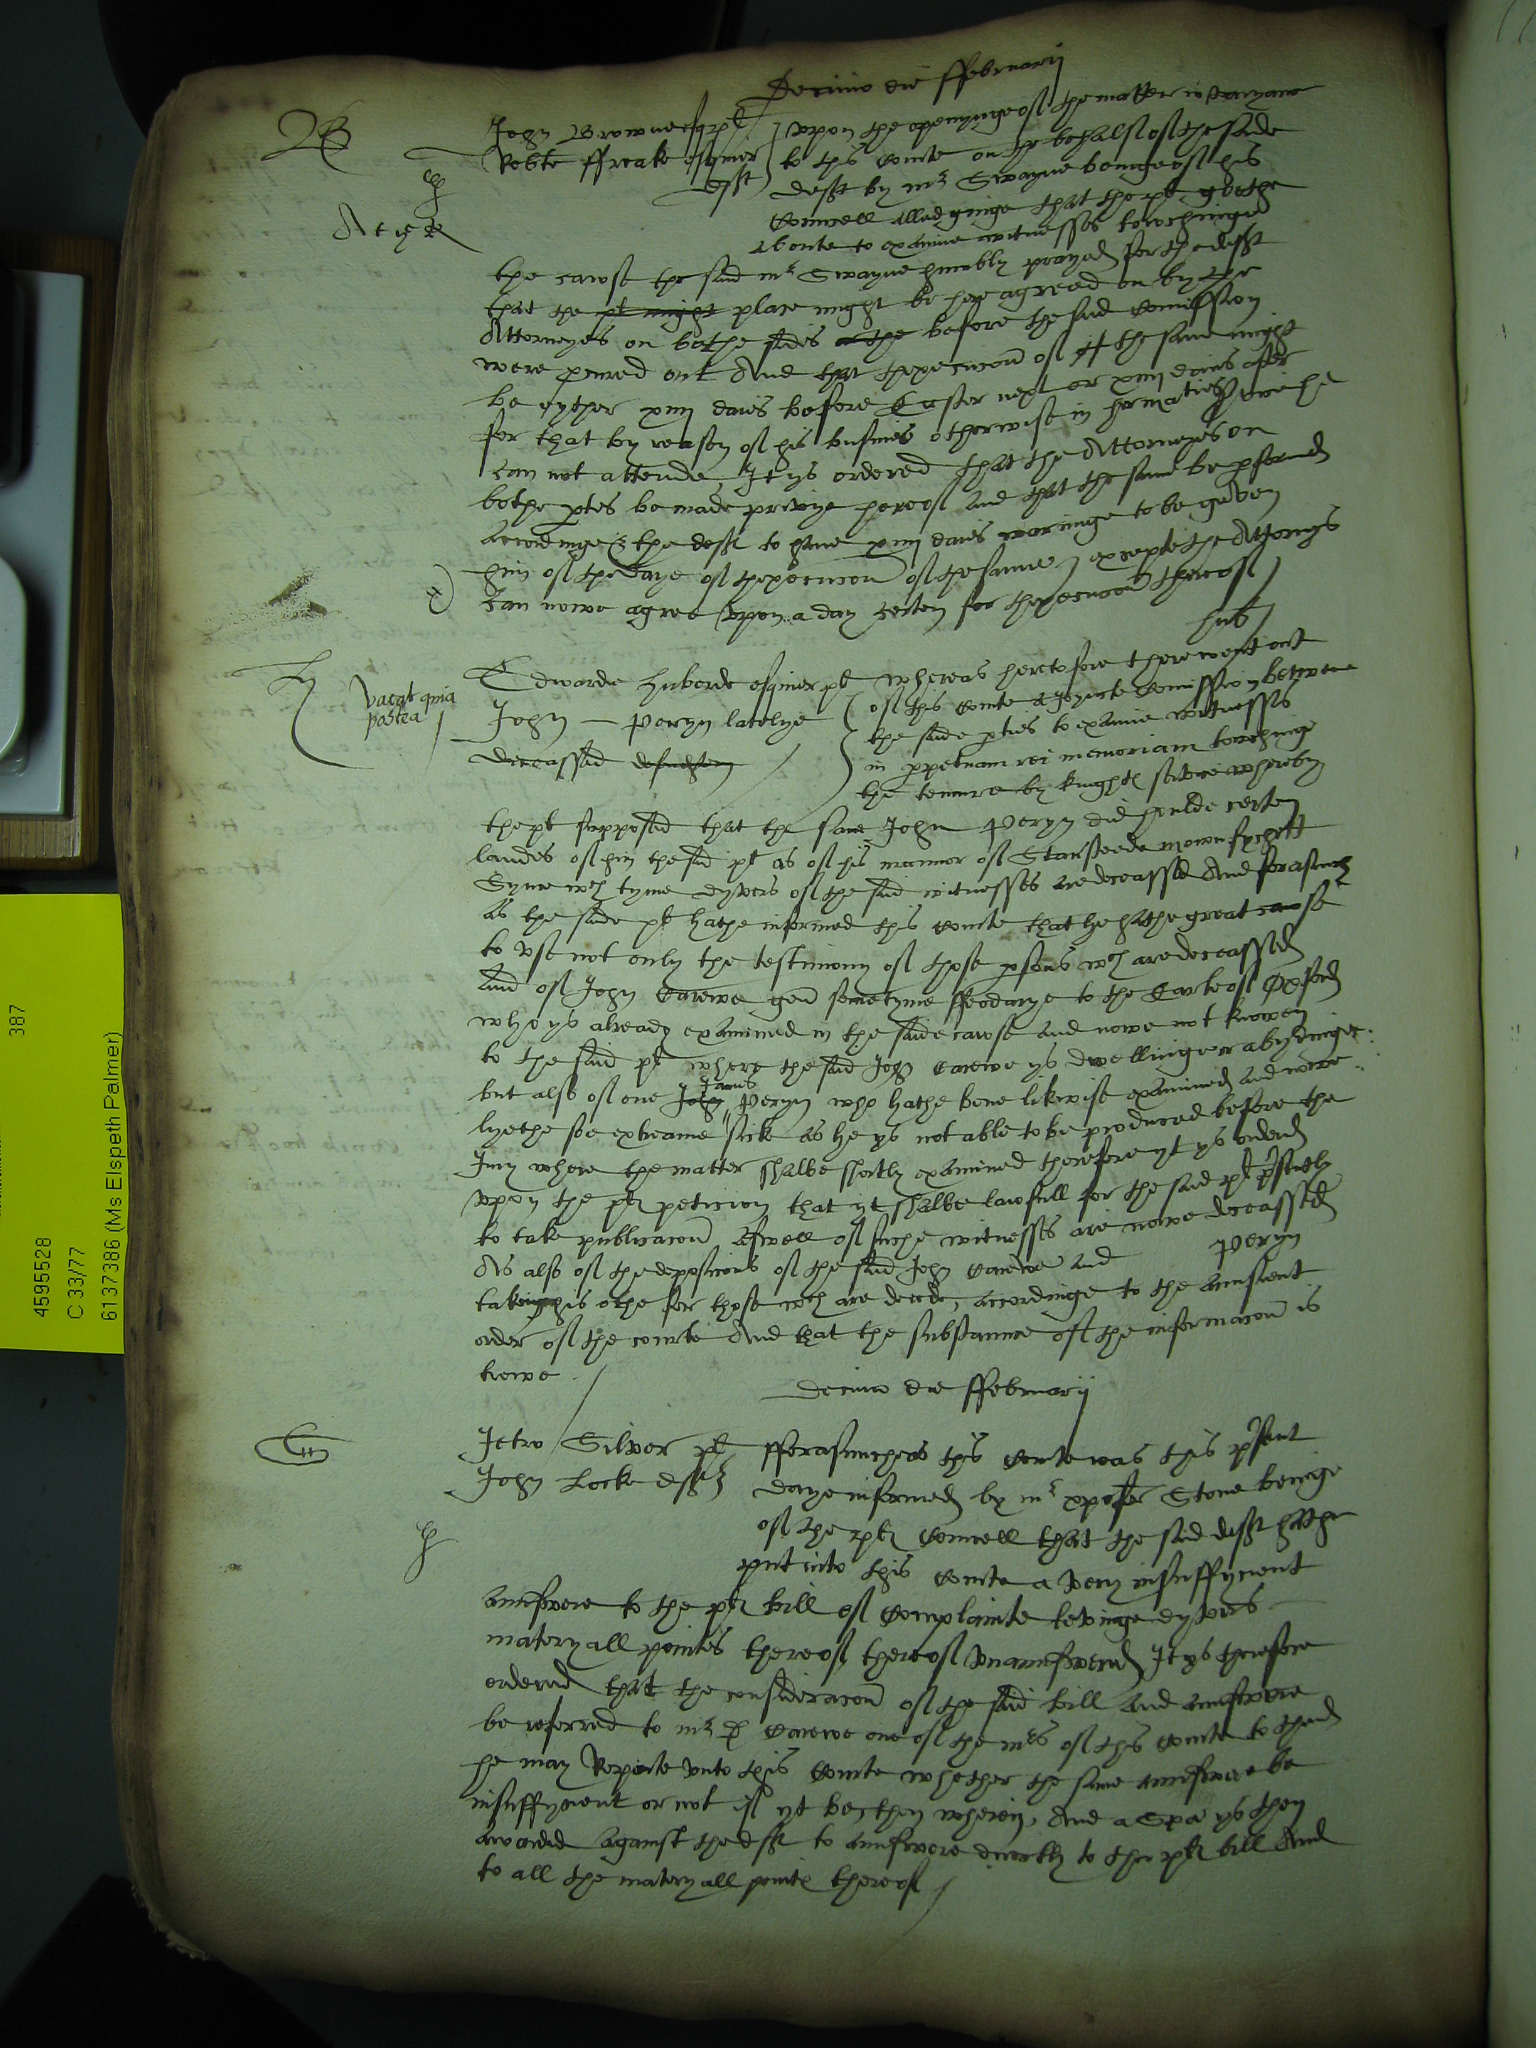 Decimo die ffebruarij
John Browne esqr pl
Robte ffreake esquier
deft
vpon the openynge of the matter in varyans
to this Courte on the behalf of the saide
deft by mr Swayne beinge of his
Councell alledginge that the pl goethe
aboute to examine witnesses towchinge
the cawse the said mr Swayne humbly prayed for the deft
that the pl might place might be here agreed on by the
Attorneyes on bothe sides the before the said Comission
were pcured out And that thexecucon of the same might
be eyther xiiij daies before Easter next or xiiij daies after
for that by reason of his busines otherwise in her maties servece he
can not attende, It ys ordered that the Attorneyes on
bothe ptes be made privye hereof And that the same be pformed
accordinge & the deft to have xiiij daies warninge to be geaven
him of the daye of thexecucon of the same excepte the Attorneys
can nowe agree vpon a day certen for thexecucon thereof
hub
vacat quia
postea
Edwarde huberde esquier pl
John Peryn latelye
deceassed defendten
whereas heretofore there went out
of this Courte a Joyncte Comission betwene
the saide pties to examine witnesses
in ppetuam rei memoriam towchinge
the tenure by knights service whereby
the pl supposed that the same John Peryn did houlde certen
landes of him the said pl as of his mannor of Stansteede mownfychett
Syns wch tyme dyvers of the said witnesses are deceassed And forasmuch
as the saide pl hathe informed this Courte that he hathe great cawse
to vse not only the testimony of those psons wch are deceassed
And of John Carewe gen sometyme ffeodarye to the Earle of Oxford
who ys already examined in the saide cawse and nowe not knowen
to the said pl where the said John Carewe ys dwellinge or abydinge
but also of one John James Peryn who hathe bene likewise examined and nowe
lyethe soe extreame sicke as he ys not able to be produced before the
Jury where the matter shalbe shortly examined therefore yt ys ordered
vpon the pl peticion that yt shalbe lawfull for the said pl psently
to take publicacon aswell of suche witnesses are nowe deceassed
As also of the deposicons of the said John Carewe and Peryn
takinge his othe for those wch are deade, accordinge to the aunsient
order of the courte And that the substaunce of the informacon is
trewe
decimo die ffebruarij
Jetro Silver pl
John Locke deft
fforasmuche as this Courte was this psent
daye informed by mr xpofer Stone beinge
of the pl Councell that the said deft hathe
put into this Courte a very insuffycient
aunswere to the pl bill of Complainte levinge dyvers
materyall pointes thereof thereof vnaunswered It ys therefore
ordered that the consideracon of the said bill and aunswere
be referred to mr Carewe one of the mrs of this Courte to thend
he may Reporte vnto this Courte whether the same aunswere be
insuffycient or not if yt be then wherein, And a Spa ys then
awarded against the deft to aunswere directly to the pl bill And
to all the materyall pointes thereof
387
4595528
C 33/77
6137386 (Ms Elspeth Palmer)